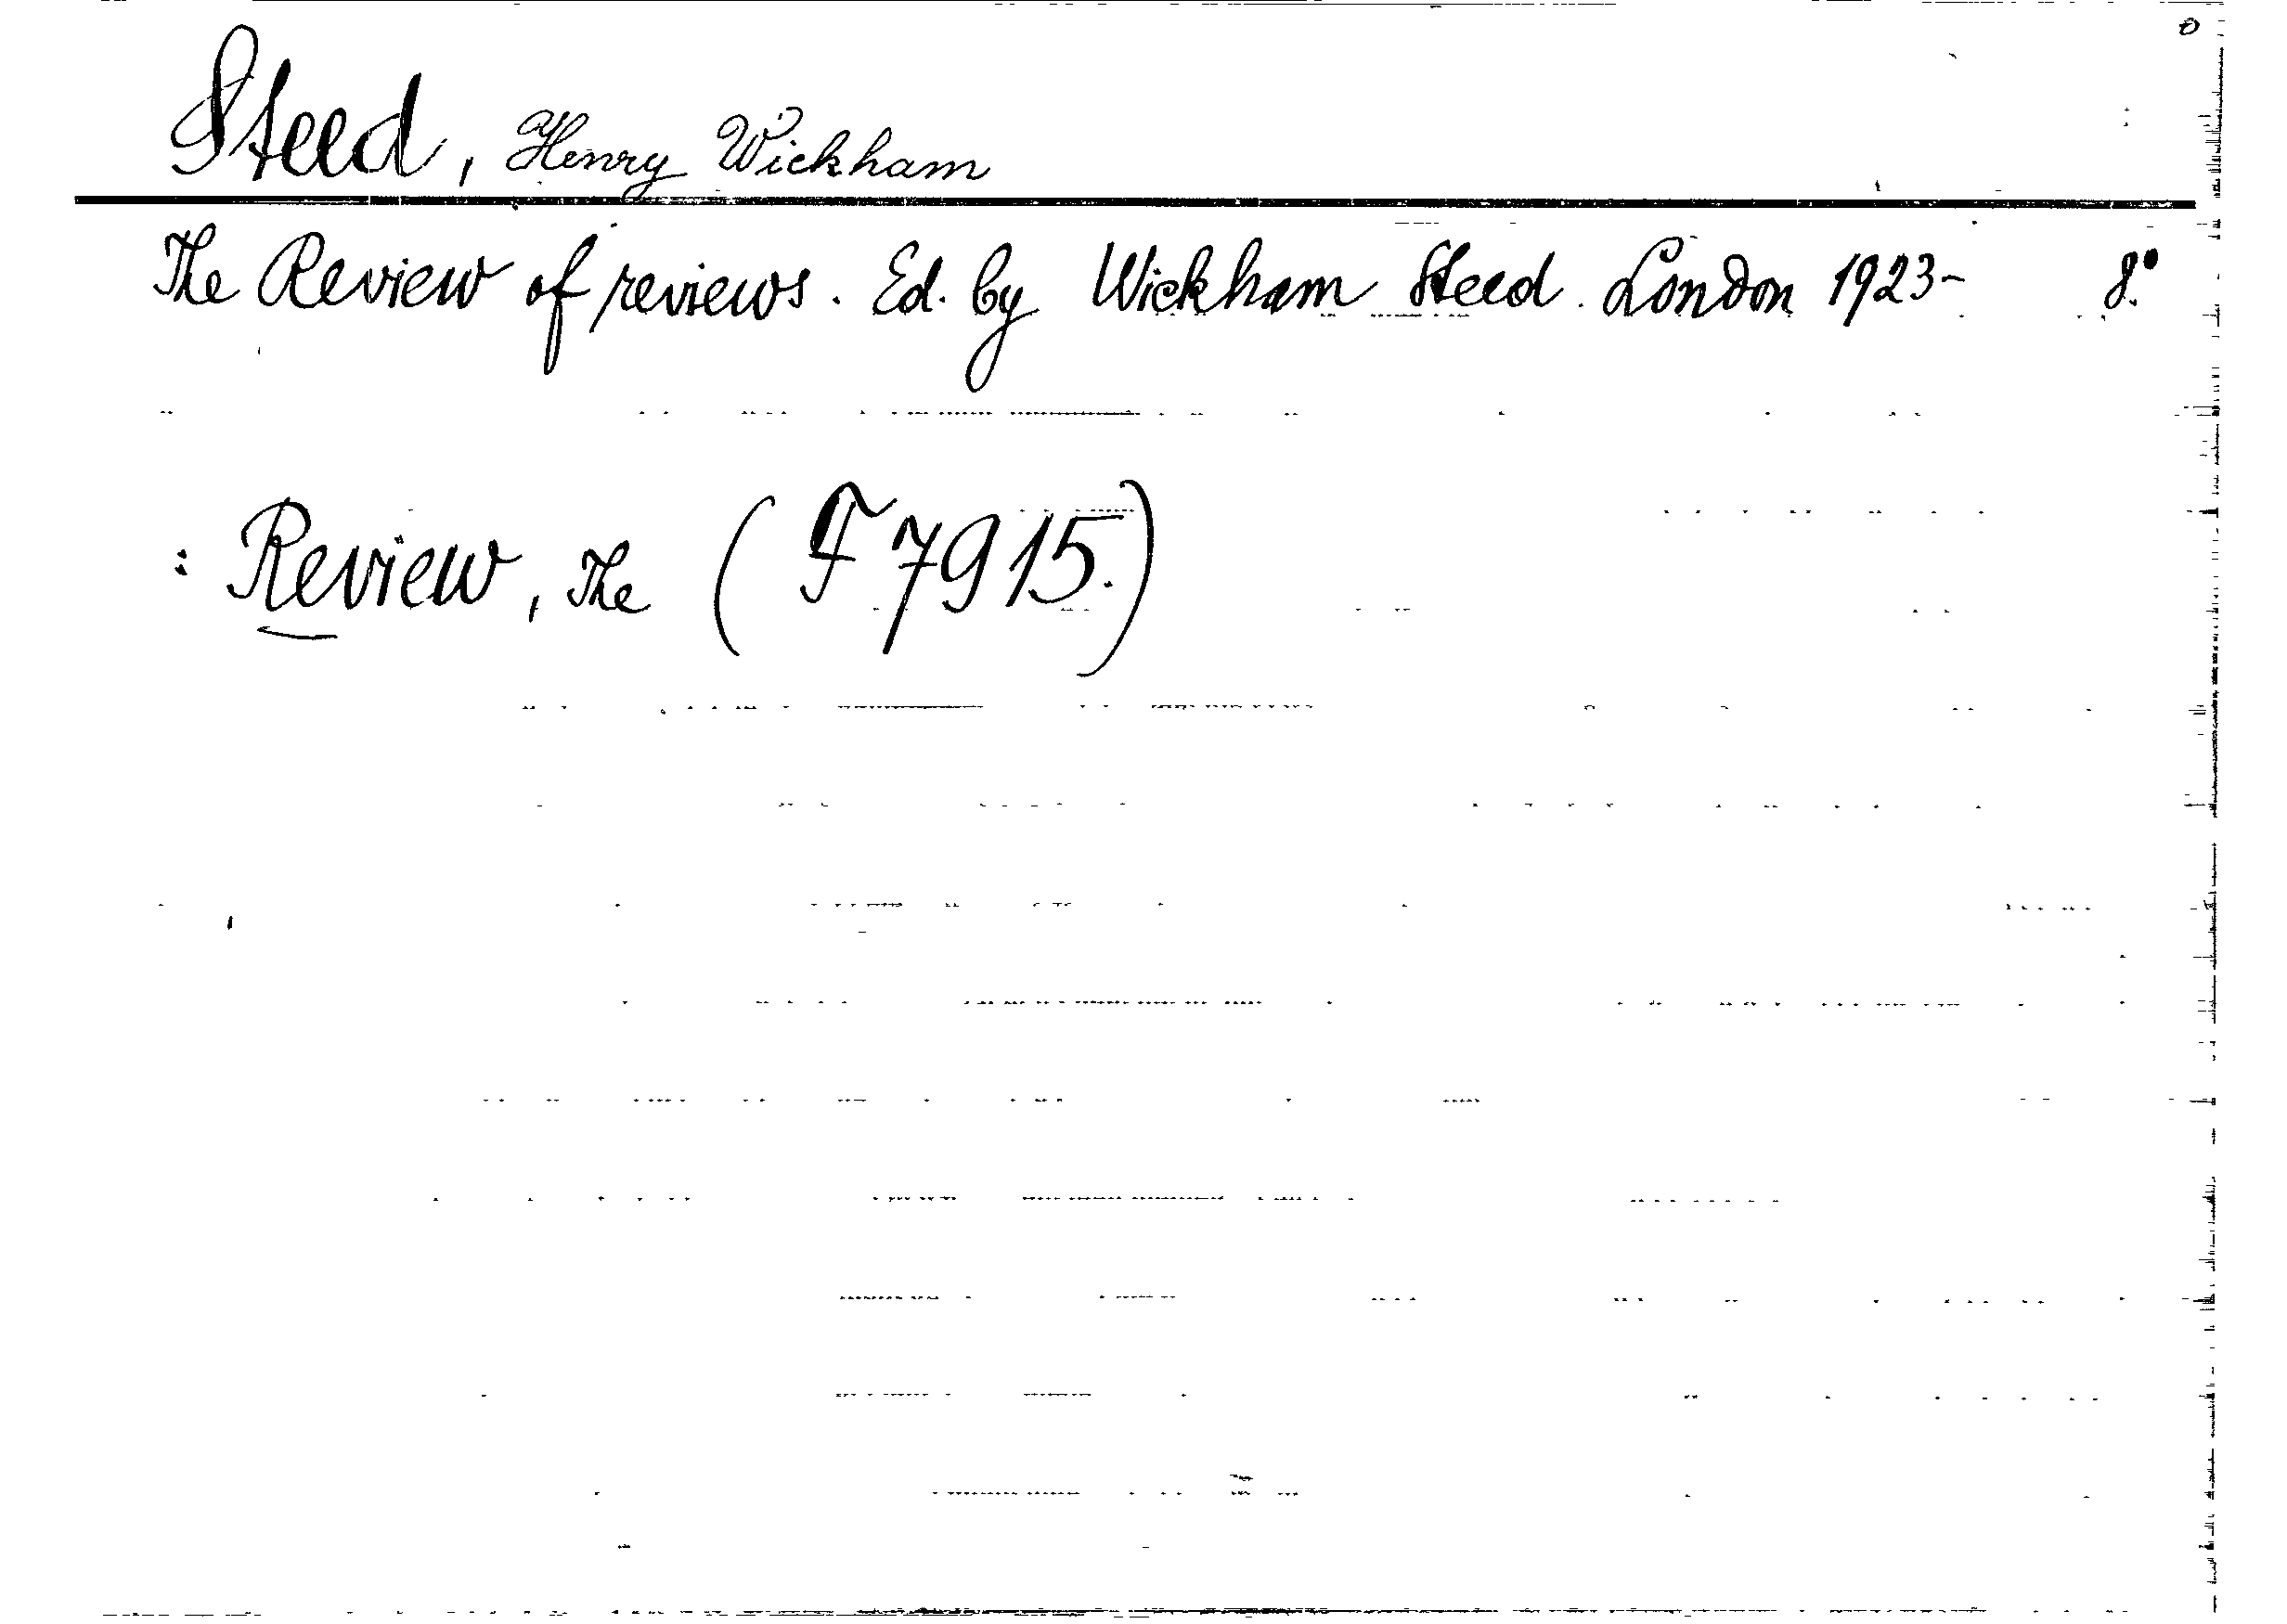 Steed, Henry Wickham
The Review of reviews. Ed. by Wickham Steed. London 1923- 8.°
: Review, The (F 7915.)